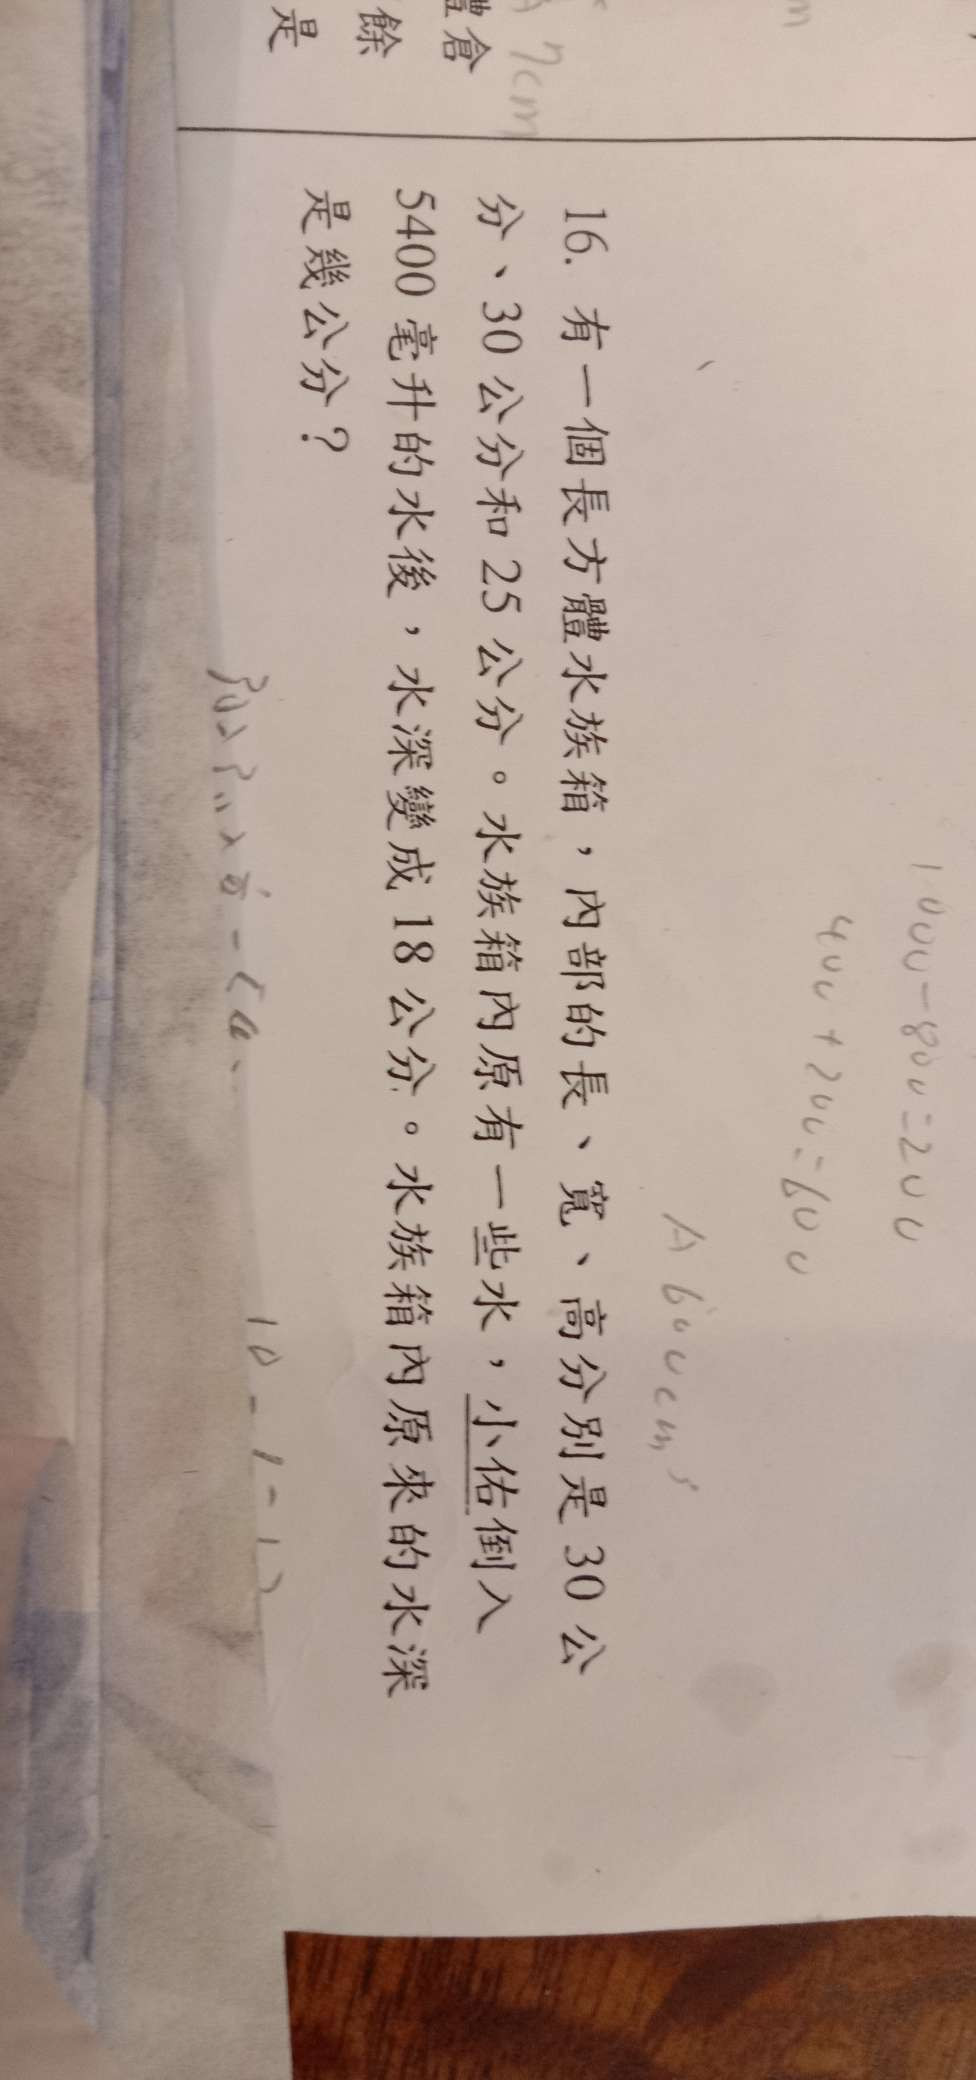 1000-800=200
400+200=600
A 600cm³
16. 有一個長方體水族箱，內部的長、寬、高分別是 30 公
分、30 公分和 25 公分。水族箱內原有一些水，小佑倒入
5400 毫升的水後，水深變成 18 公分。水族箱內原來的水深
是幾公分？
體倉
餘
是
7cm